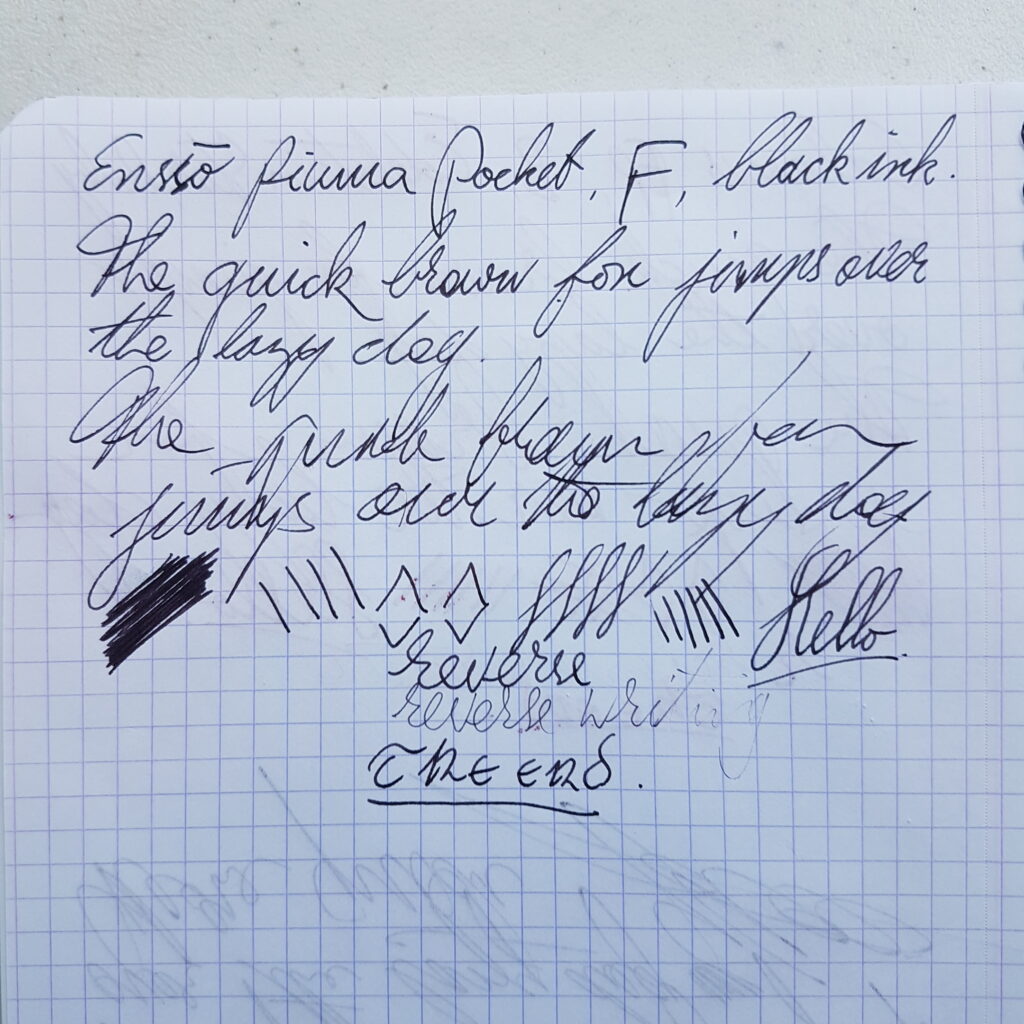 Ensso piuma pocket, F, black ink.
The quick brown fox jumps over
the lazy dog.
The quick brown fox
jumps over the lazy dog
Hello.
reverse
reverse writing